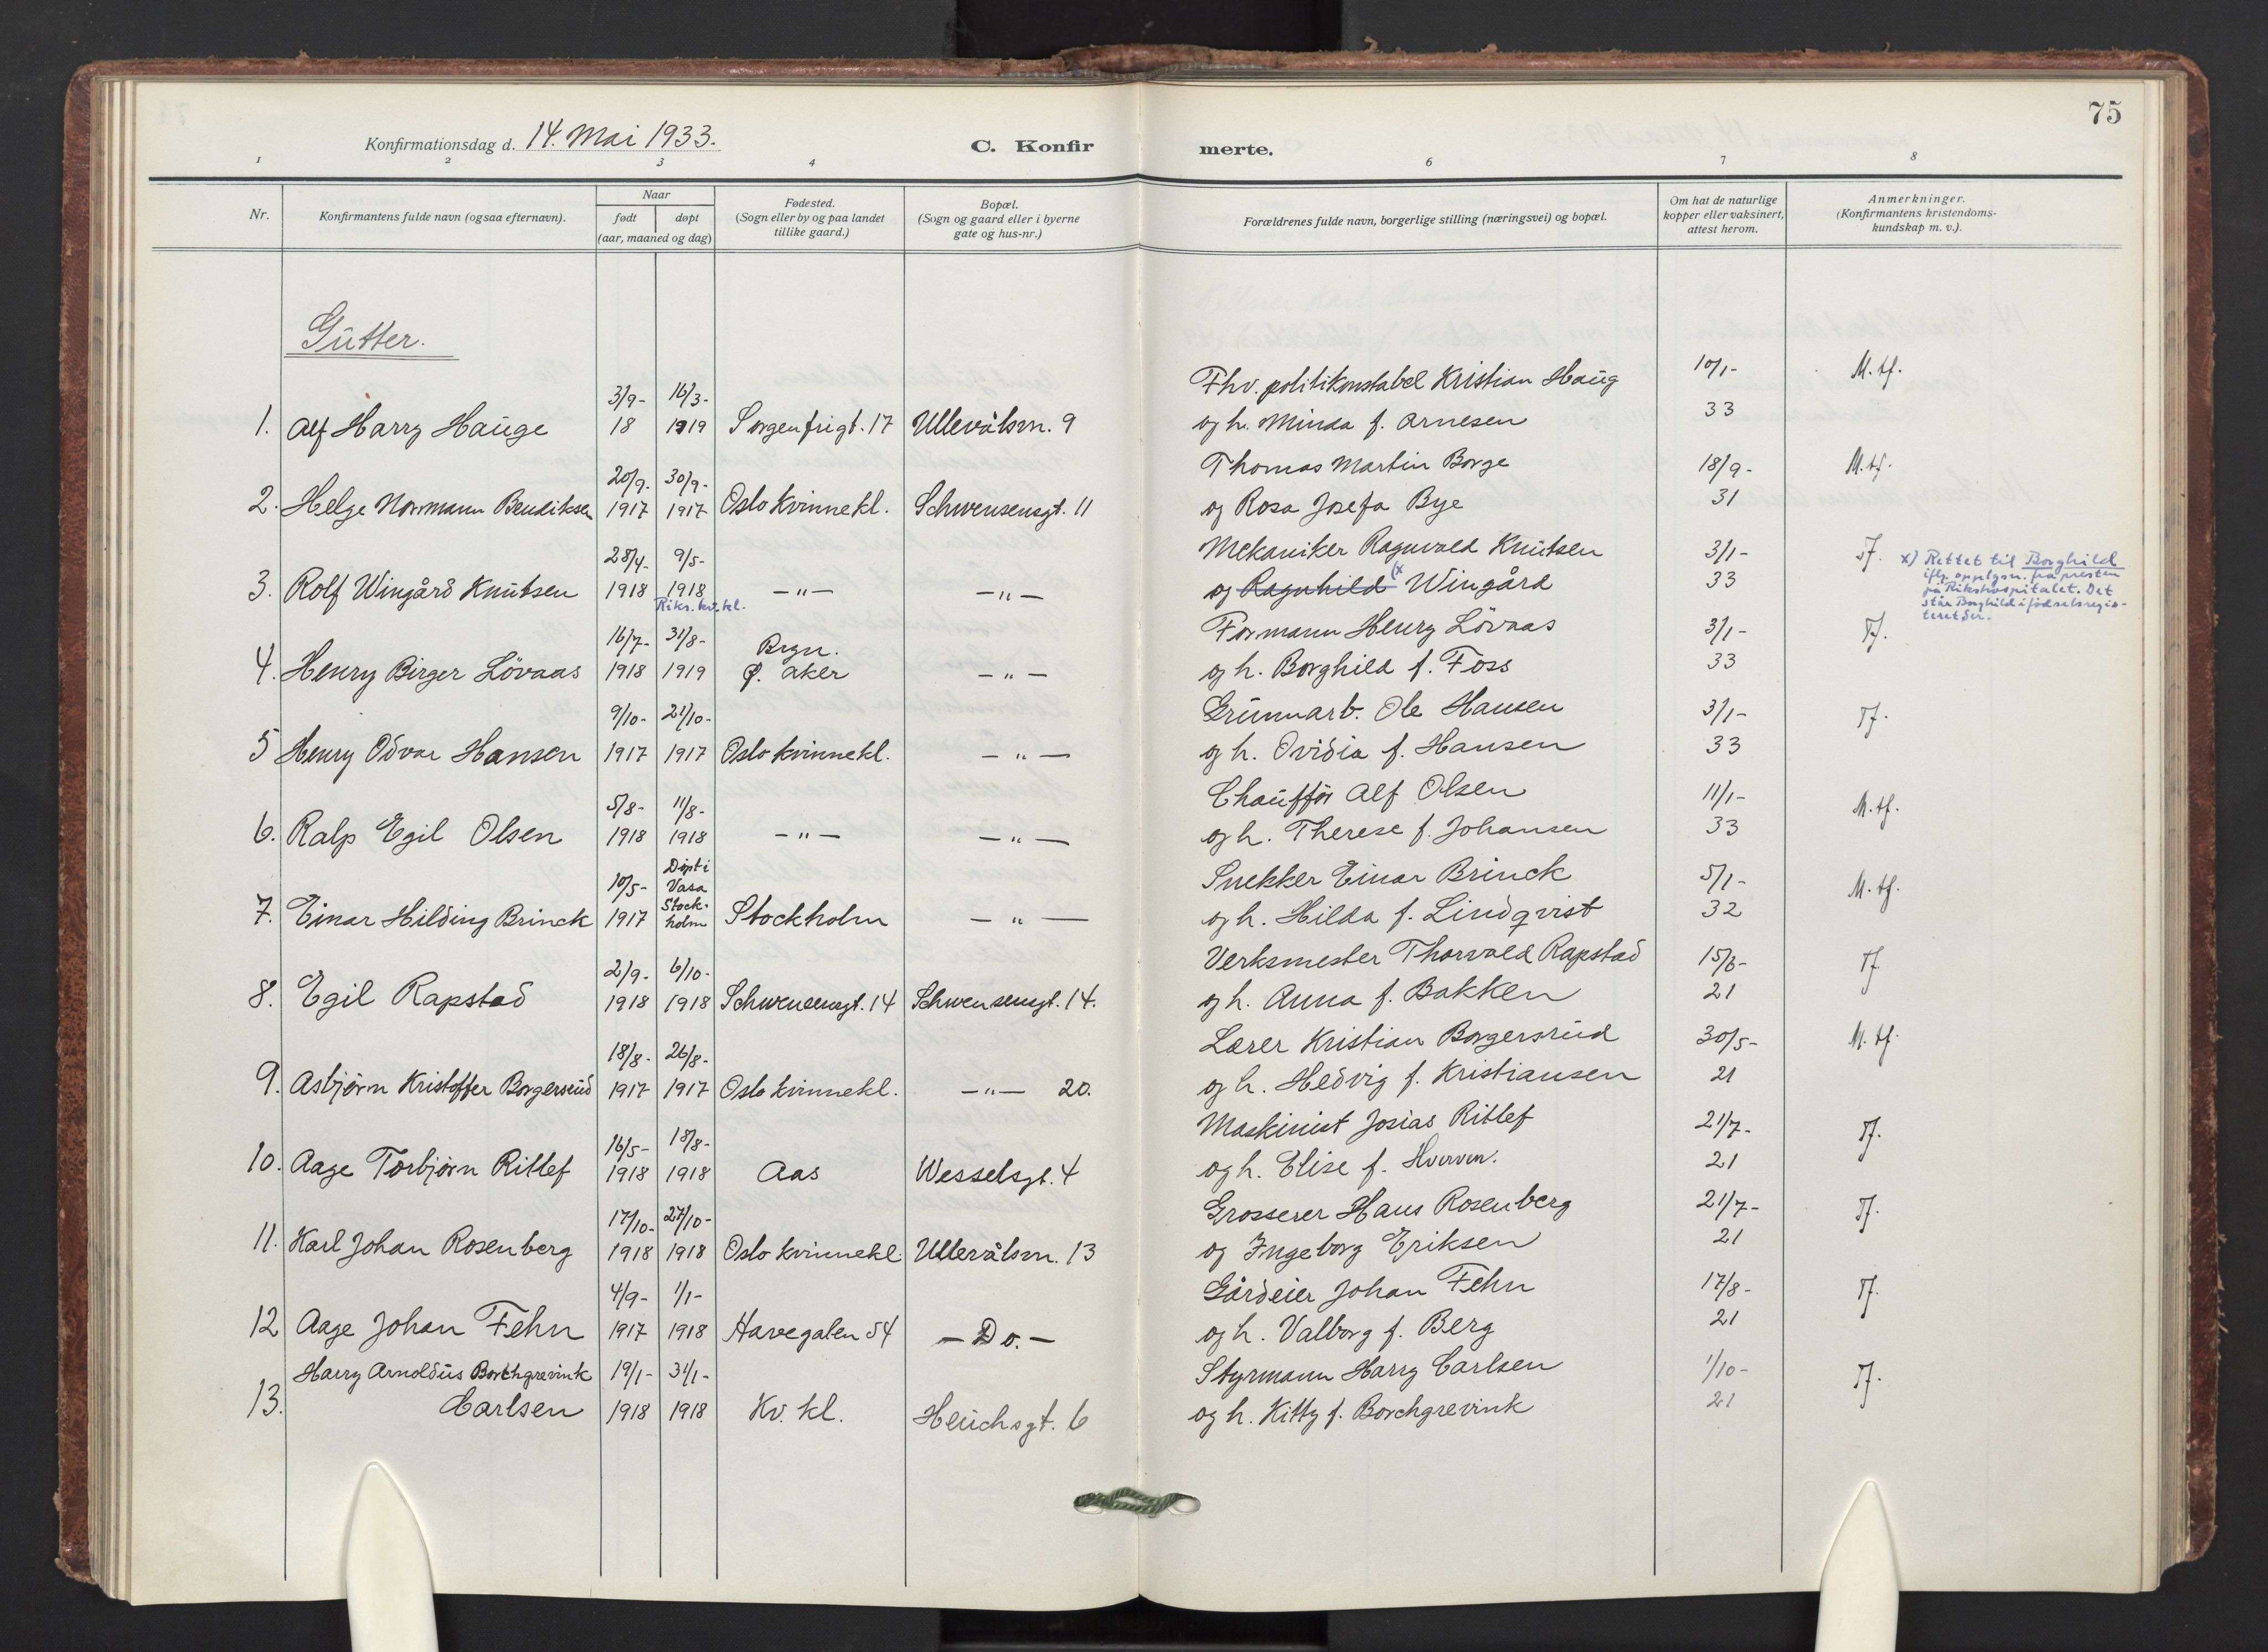 75
Konfirmationsdag d. 14. Mai 1933.
C. Konfirmerte.
1 2 3 4 6 7 8
Nr.
Konfirmantens fulde navn (ogsaa efternavn).
Naar
født døpt
(aar, maaned og dag)
Fødested.
(Sogn eller by og paa landet
tillike gaard.)
Bopæl.
(Sogn og gaard eller i byerne
gate og hus-nr.)
Forældrenes fulde navn, borgerlige stilling (næringsvei) og bopæl.
Om hat de naturlige
kopper eller vaksinert,
attest herom.
Anmerkninger.
(Konfirmantens kristendoms-
kundskap m. v.).
Gutter.
3/9- 16/3- Fhv. politikonstabel Kristian Haug 10/1- M. tf.
1. Alf Harry Hauge 18 1919 Sorgenfrigt. 17 Ullevålsvn. 9 og h. Minda f. Arnesen 33
20/9- 30/9- Thomas Martin Borge 18/9- M. tf.
2. Helge Normann Bendiksen 1917 1917 Oslo Kvinnekl. Schwensensgt. 11 og Rosa Josefa Bye 31
28/4- 9/5- Mekaniker Ragnvald Knutsen 3/1- Tf.
3. Rolf Wingård Knutsen 1918 1918 -"- -"- og Ragnhild (x Wingård 33
Riks. kv. kl.
x) Rettet til Borghild
iflg. opplysn. fra presten
på Rikshospitalet. Det
står Borghild i fødselsregis-
teret der.
16/7- 31/8- Brgn. Formann Henry Lövaas 3/1- Tf.
4. Henry Birger Lövaas 1918 1919 Ø. Aker -"- og h. Borghild f. Foss 33
9/10- 21/10- Grunnarb. Ole Hansen 3/1- Tf.
5 Henry Odvar Hansen 1917 1917 Oslo kvinnekl. -"- og h. Ovidia f. Hansen 33
5/8- 11/8- Chauffør Alf Olsen 11/1- M. tf.
6. Ralp Egil Olsen 1918 1918 -"- -"- og h. Therese f. Johansen 33
10/5- Døpt i Vasa Snekker Einar Brinck 5/1- M. tf.
7. Einar Hilding Brinck 1917 Stock-holm Stockholm -"- og h. Hilda f. Lindqvist 32
2/9- 6/10- Verksmester Thorvald Rapstad 15/6- Tf
8. Egil Rapstad 1918 1918 Schwensensgt. 14 Schwensensgt. 14. og h. Anna f. Bakken 21
18/8- 26/8- Lærer Kristian Borgersrud 30/5- M. tf.
9. Asbjörn Kristoffer Borgersrud 1917 1917 Oslo kvinnekl. -"- 20. og h. Hedvig f. Kristiansen 21
16/5- 18/8- Maskinist Josias Ritlef 21/7- Tf.
10. Aage Torbjörn Ritlef 1918 1918 Aas Wesselsgt. 4 og h. Elise f. Hverven. 21
17/10- 27/10- Grosserer Hans Rosenberg 21/7- Tf.
11. Karl Johan Rosenberg 1918 1918 Oslo kvinnekl. Ullevålsvn. 13 og Ingeborg Eriksen 21
4/9- 1/1- Gårdeier Johan Fehn 17/8- Tf.
12 Aage Johan Fehn 1917 1918 Havegaten 54 - Do. - og h. Valborg f. Berg 21
Harry Arnoldus Borchgrevink 19/1- 31/1- Styrmann Harry Carlsen 1/10- Tf.
13. Carlsen 1918 1918 Kv. kl. Heuchsgt. 6 og h. Kitty f. Borchgrevink 21